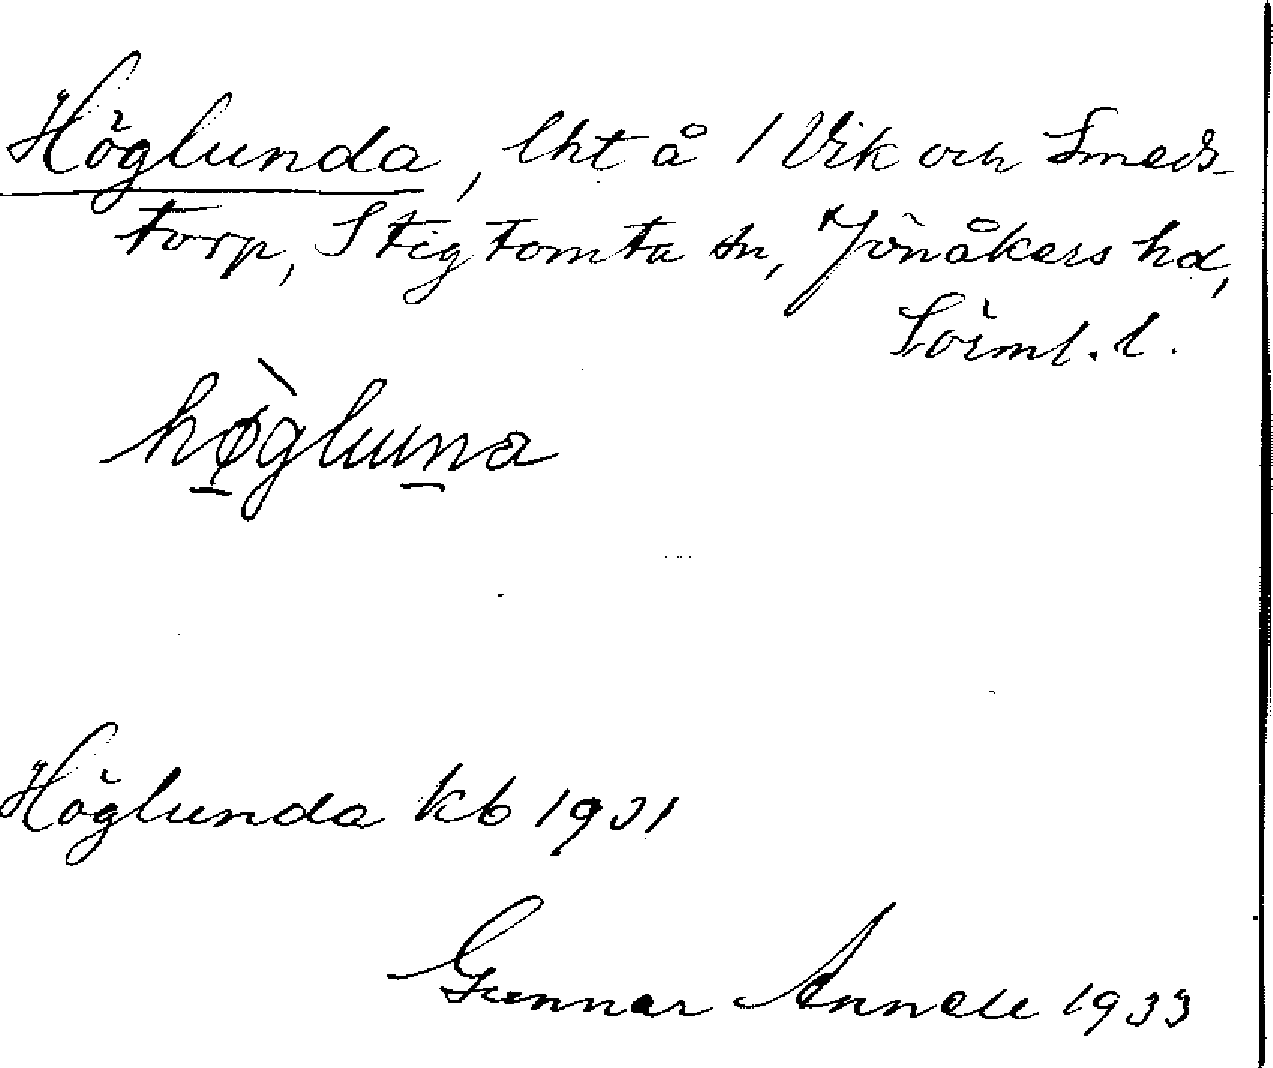 Höglunda, lht å / Vik och Smeds-
torp, Stigtomta sn, Jönåkers hd,
Sörml. l.
hø̀gluna
Höglunda kb 1931
Gunnar Annell 1933